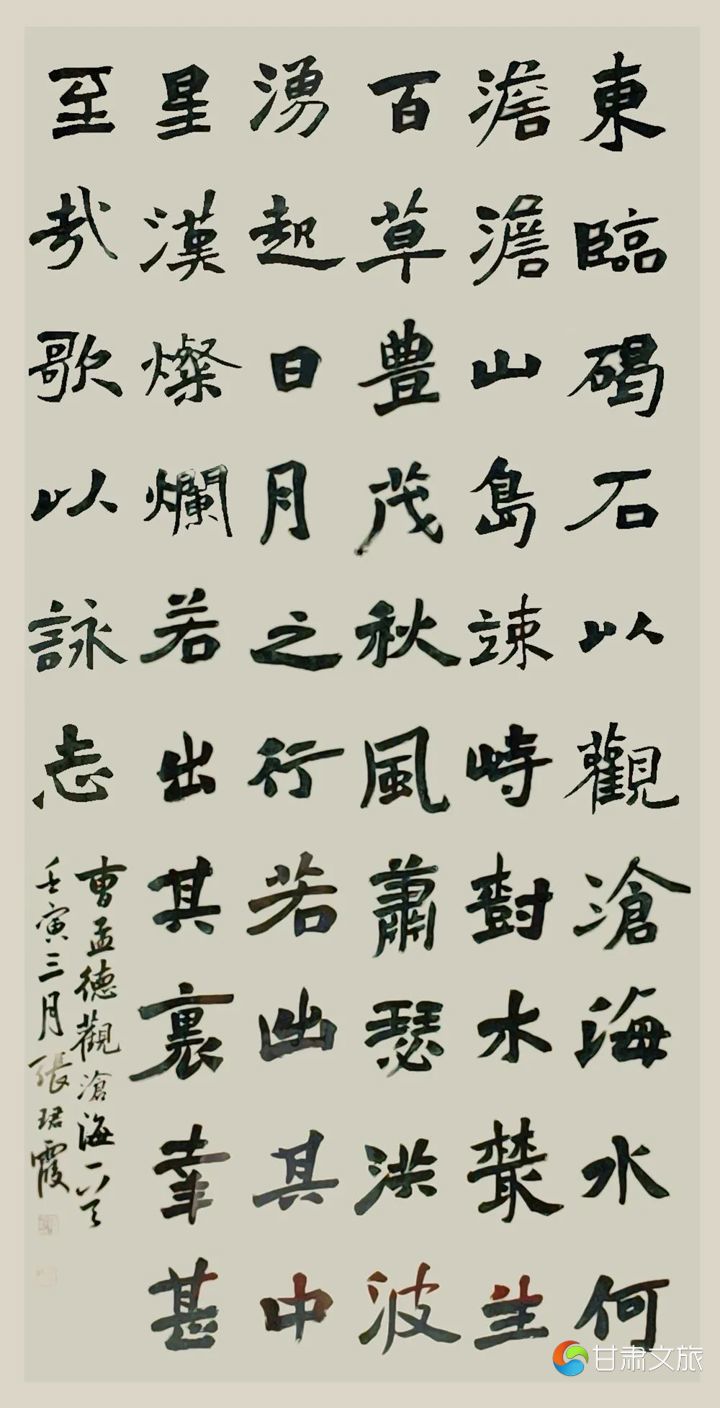 東臨碣石以觀滄海水何
澹澹山島竦峙樹木叢生
百草豊茂秋風蕭瑟洪波
湧起日月之行若出其中
星漢燦爛若出其裏幸甚
至哉歌以詠志
曹孟德觀滄海一首
壬寅三月張珺霞
甘肃文旅